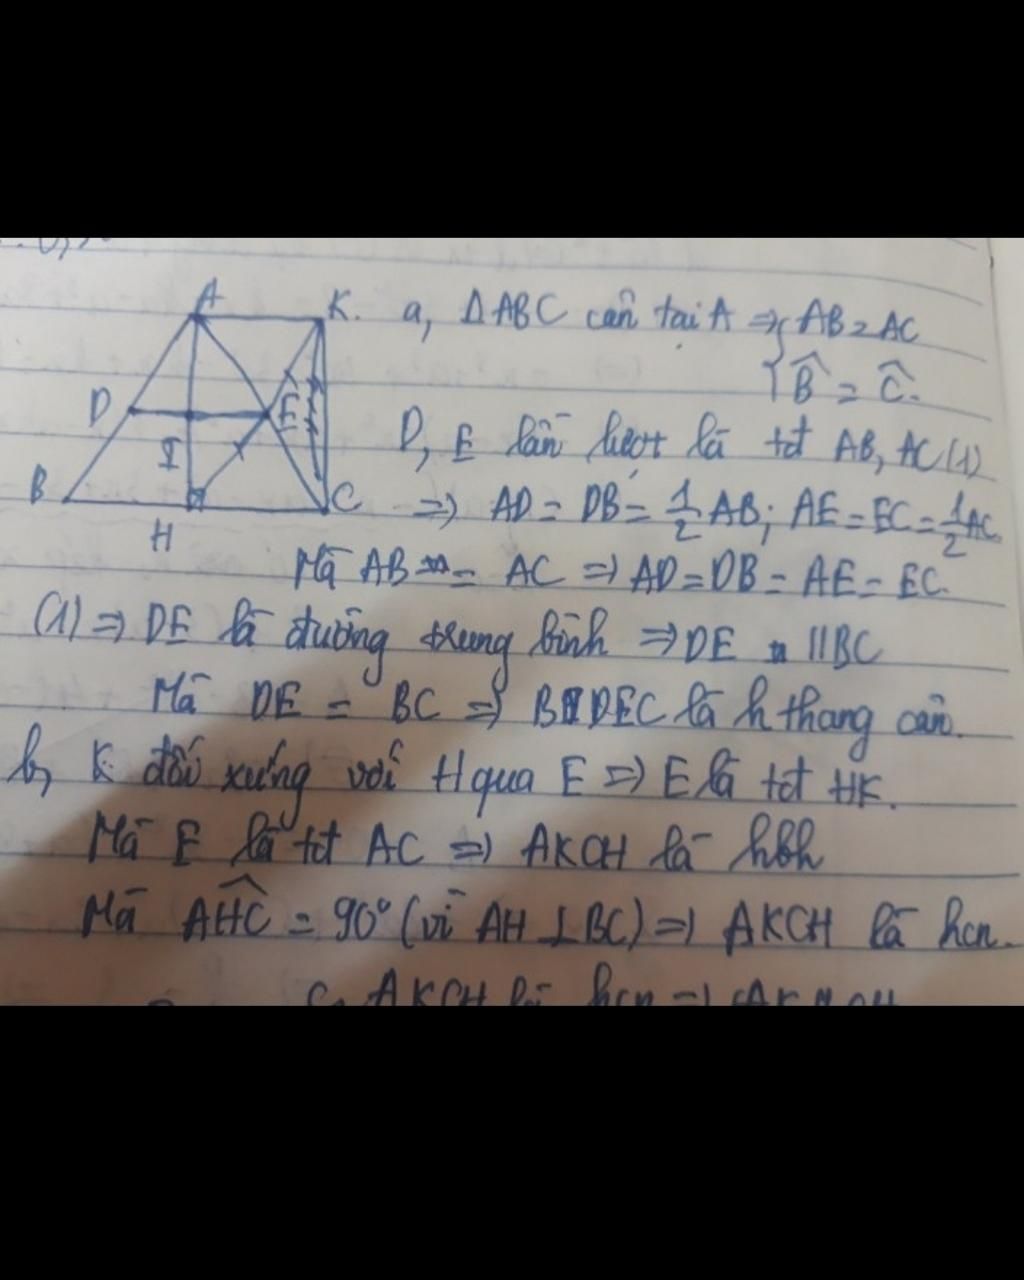 A K.
D E
I
B C
H
a, ΔABC cân tại A => { AB = AC
B̂ = Ĉ.
D, E lần lượt là tđ AB, AC (1)
=> AD = DB = 1/2 AB; AE = EC = 1/2 AC
Mà AB = AC => AD = DB = AE = EC.
(1) => DE là đường trung bình => DE // BC
Mà DE = BC => BDEC là h thang cân.
b, K đối xứng với H qua E => E là tđ HK.
Mà E là tđ AC => AKCH là hbh
Mà AHC = 90° (vì AH ⊥ BC) => AKCH là hcn.
c, AKCH là hcn =>